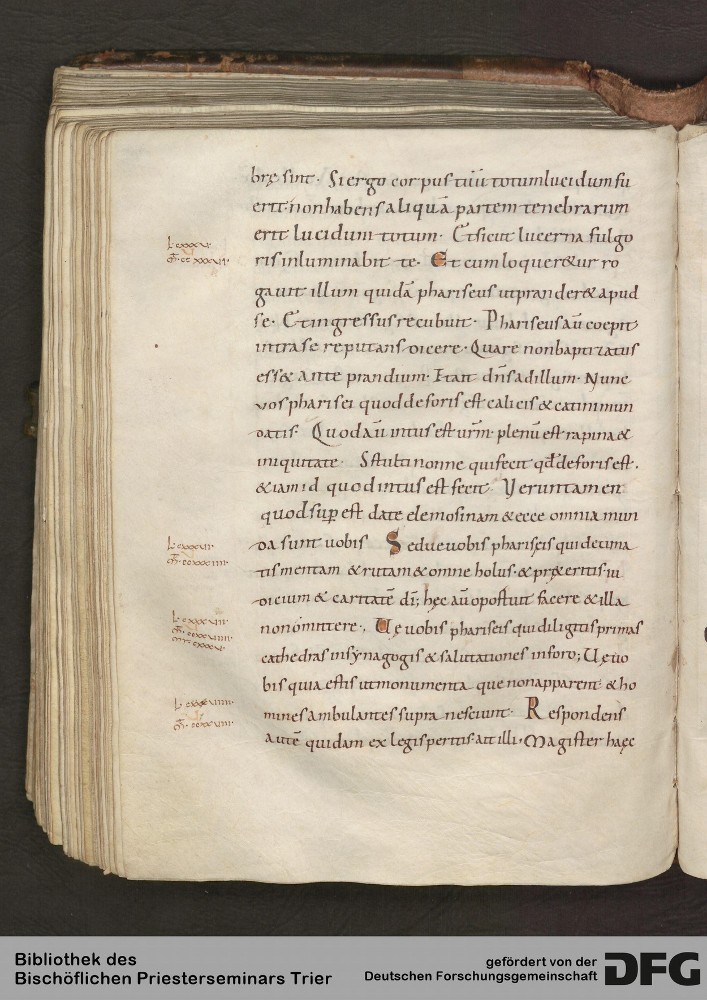 brę sint. Si ergo corpus tuū totum lucidum fu
erit non habens aliquā partem tenebrarum
erit lucidum totum. Et sicut lucerna fulgo
ris inluminabit te. Et cum loquer&ur ro
gauit illum quidā phariseus ut prander& apud
se. Et ingressus recubuit. Phariseus aū coepit
intra se reputans dicere. Quare non baptizatus
ess& ante prandium. Et ait dn̄s ad illum. Nunc
uos pharisei quod de foris est calicis & catini mun
datis. Quod aū intus est urm̄. plenū est rapina &
iniquitate. Stulti nonne qui fecit qd̄ de foris est.
& iam id quod intus est fecit. Veruntamen
quod sup̄ est date elemosinam & ecce omnia mun
da sunt uobis Sed ue uobis phariseis qui decima
tis mentam & rutam & omne holus. & pręteritis iu
dicium & caritatē dī; hęc aū oportuit facere & illa
non omittere. Uę uobis phariseis qui diligitis primas
cathedras in synagogis & salutationes in foro; Uę uo
bis quia estis ut monumenta que non apparent & ho
mines ambulantes supra nesciunt. Respondens
autē quidam ex legis peritis. ait illi. Magister haęc
Bibliothek des
Bischöflichen Priesterseminars Trier
gefördert von der
Deutschen Forschungsgemeinschaft
DFG